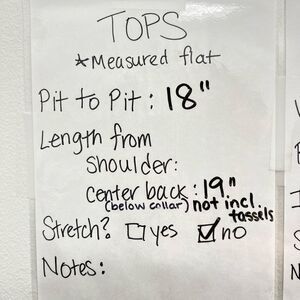 TOPS
*Measured flat
Pit to Pit: 18"
Length from
shoulder:
center back: 19"
(below collar) not incl.
tassels
Stretch? ☐ yes ☑ no
Notes: